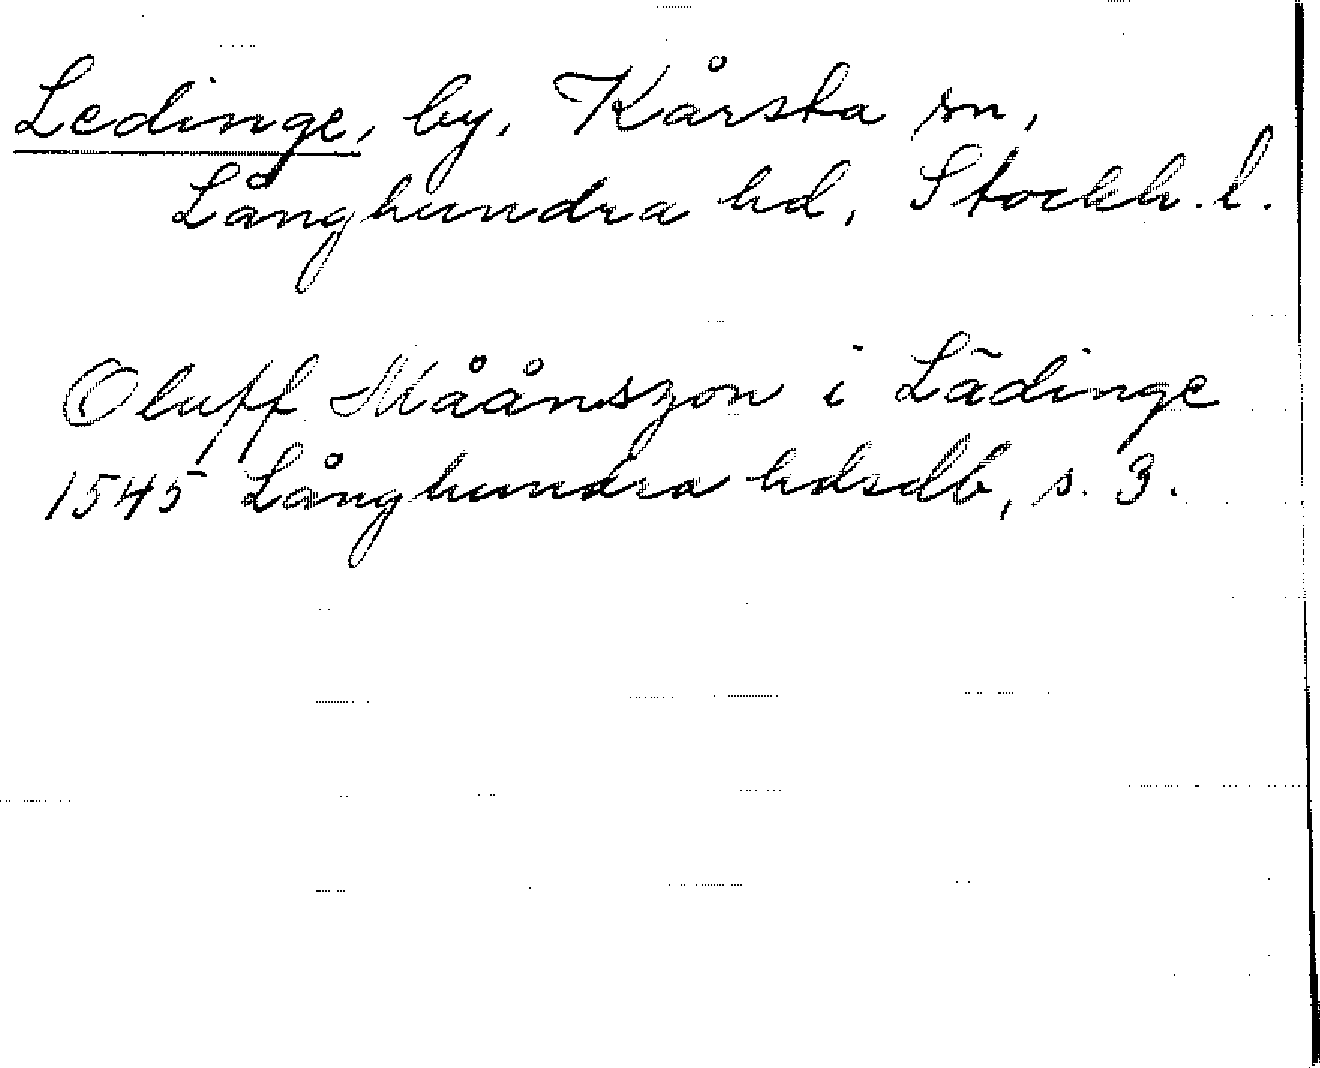 Ledinge, by, Kårsta sn,
Långhundra hd, Stockh. l.
Oluff Måånszon i Lädinge
1545 Långhundra hdsdb, s. 3.